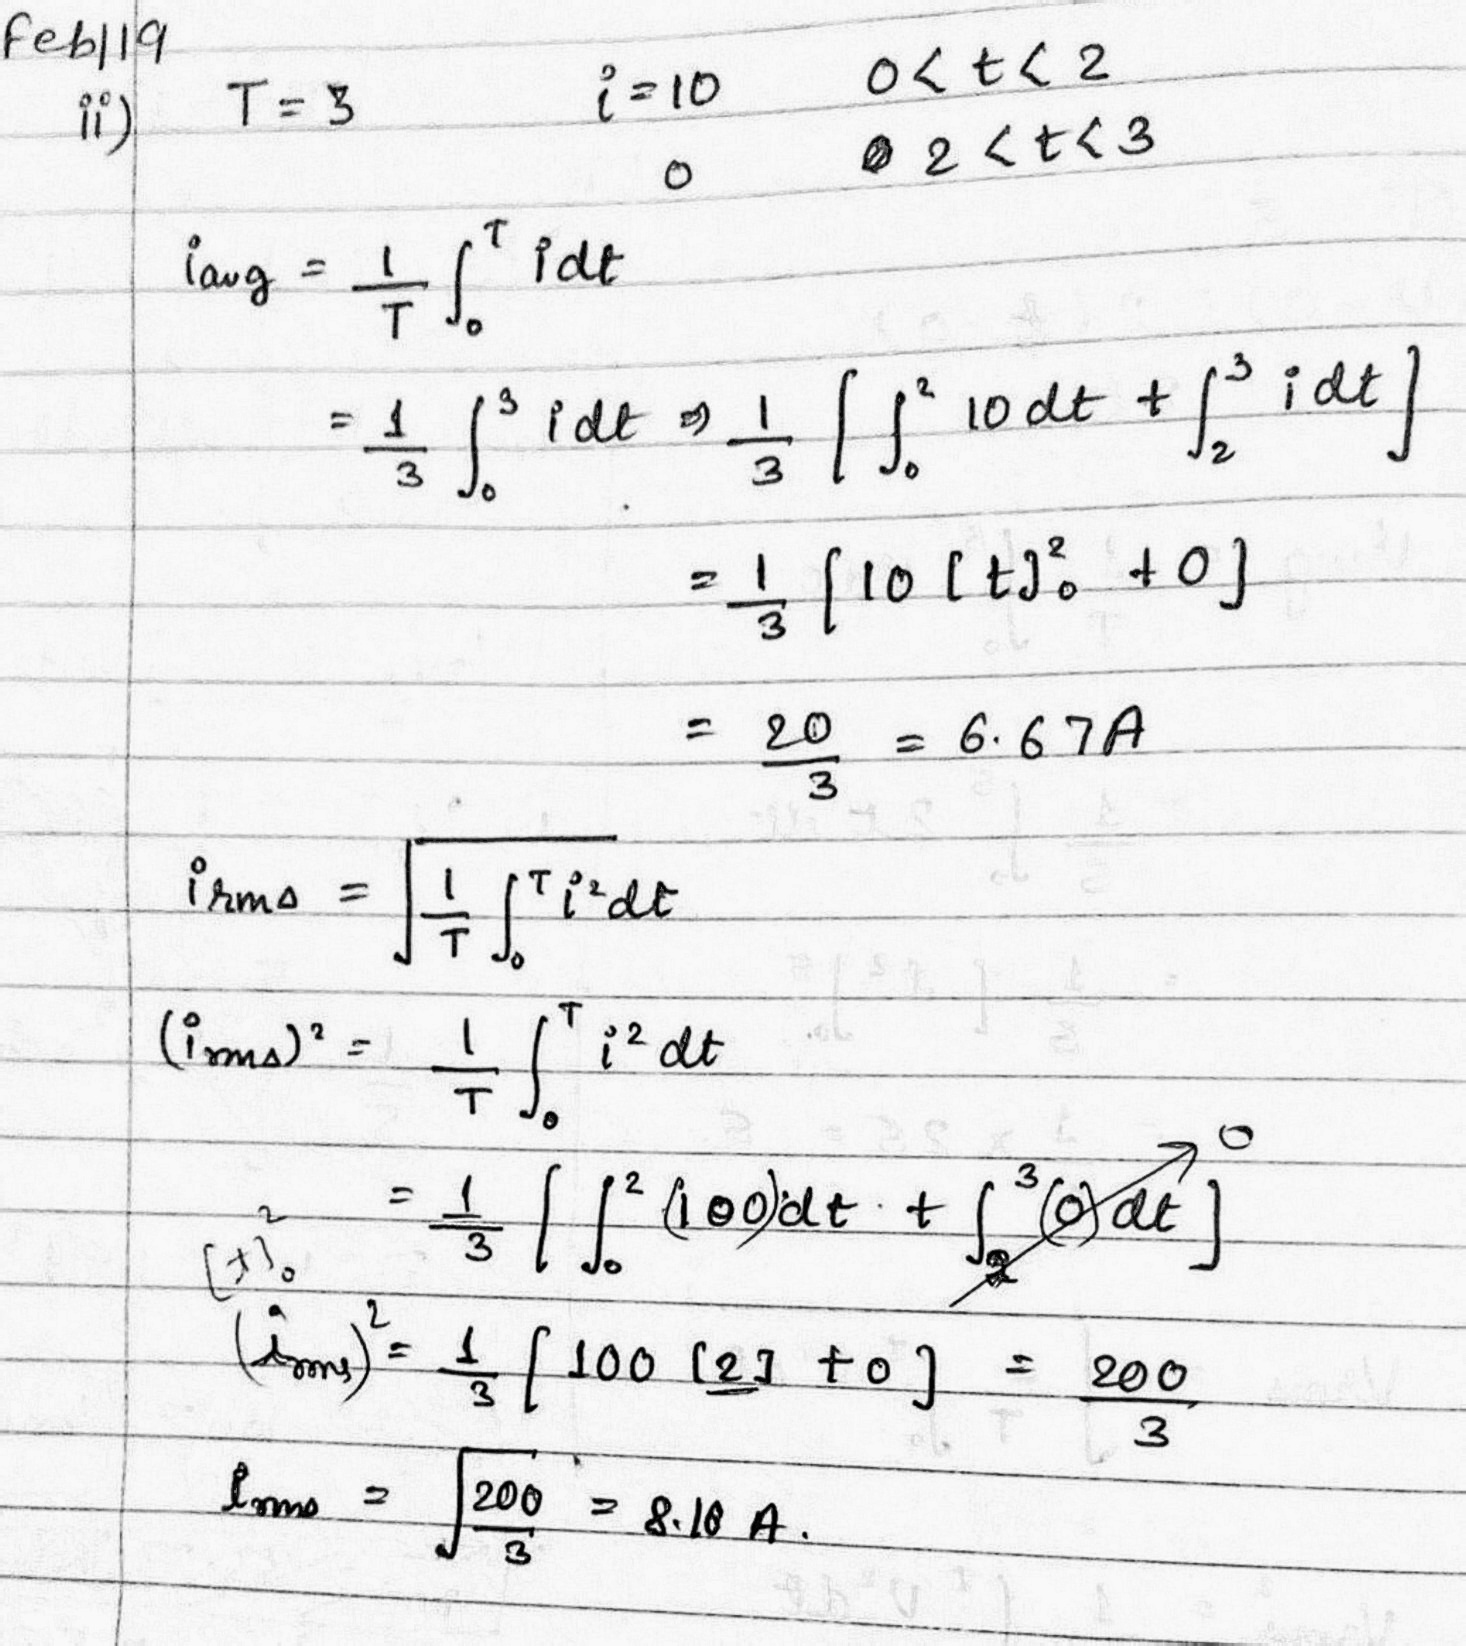 Feb/19
ii) T = 3 i = 10 0 < t < 2
0 2 < t < 3
iavg = 1/T ∫₀ᵀ i dt
= 1/3 ∫₀³ i dt ⇒ 1/3 [ ∫₀² 10 dt + ∫₂³ i dt ]
= 1/3 [ 10 [t]₀² + 0 ]
= 20/3 = 6.67 A
irms = √(1/T ∫₀ᵀ i² dt)
(irms)² = 1/T ∫₀ᵀ i² dt
= 1/3 [ ∫₀² (100) dt + ∫₂³ (0) dt ] 0
[t]₀²
(irms)² = 1/3 [ 100 [2] + 0 ] = 200/3
irms = √(200/3) = 8.16 A.